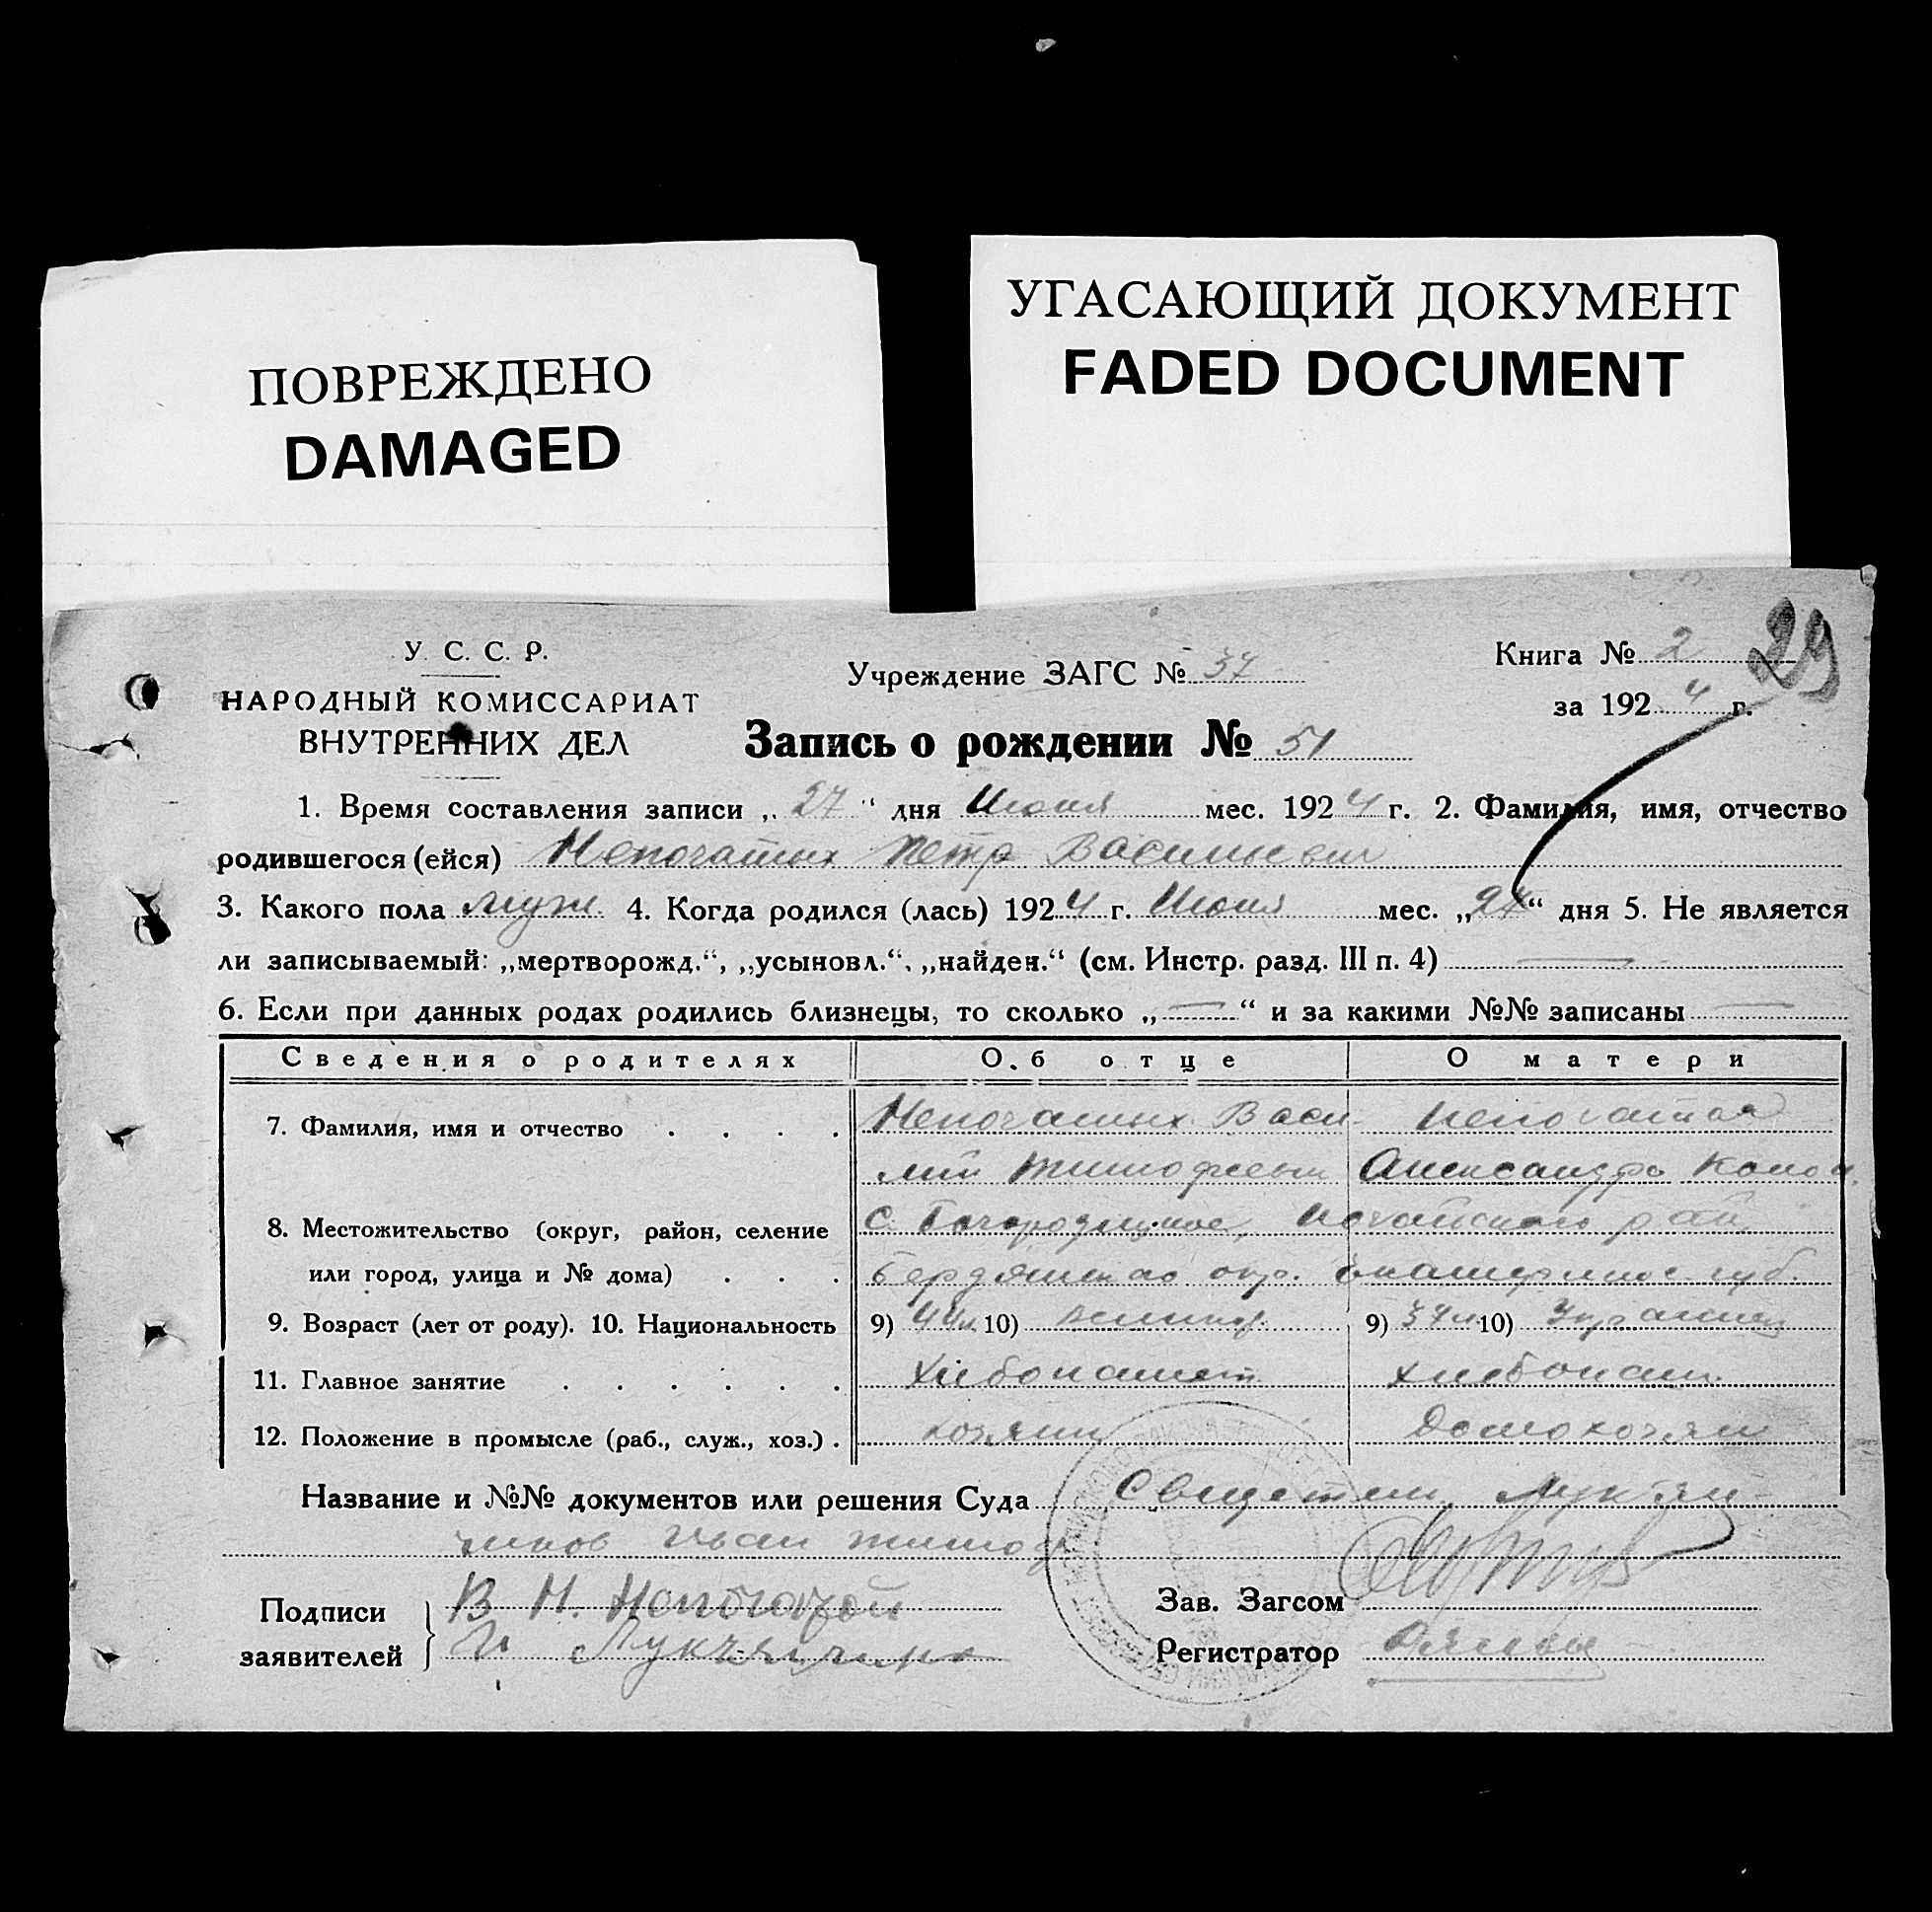 ПОВРЕЖДЕНО
DAMAGED
УГАСАЮЩИЙ ДОКУМЕНТ
FADED DOCUMENT
29
У. С. С. Р.
НАРОДНЫЙ КОМИССАРИАТ
ВНУТРЕННИХ ДЕЛ
Учреждение ЗАГС № 37
Книга № 2
за 1924 г.
Запись о рождении № 51
1. Время составления записи „27“ дня Июня мес. 1924 г. 2. Фамилия, имя, отчество
родившегося (ейся) Непочатых Петр Васильевич
3. Какого пола муж. 4. Когда родился (лась) 1924 г. Июня мес. „27“ дня 5. Не является
ли записываемый: „мертворожд.“, „усыновл.“, „найден.“ (см. Инстр. разд. III п. 4) —
6. Если при данных родах родились близнецы, то сколько „—“ и за какими №№ записаны —
Сведения о родителях Об отце О матери
7. Фамилия, имя и отчество Непочатых Васи- Непочатая
лий Тимофеевич Александра
8. Местожительство (округ, район, селение с. Богородицкое, Ногайского рай.
или город, улица и № дома) Бердянского окр. Екатеринос. губ.
9. Возраст (лет от роду). 10. Национальность 9) 44 л. 10) великор. 9) 37 л. 10)
11. Главное занятие Хлебопашест. хлебопаш.
12. Положение в промысле (раб., служ., хоз.) хозяин Домохозяй
Название и №№ документов или решения Суда Свидетель Лукьян-
чиков Иван Тимоф
Подписи
заявителей
В Н. Непочатой
И Лукянчико
Зав. Загсом
Регистратор